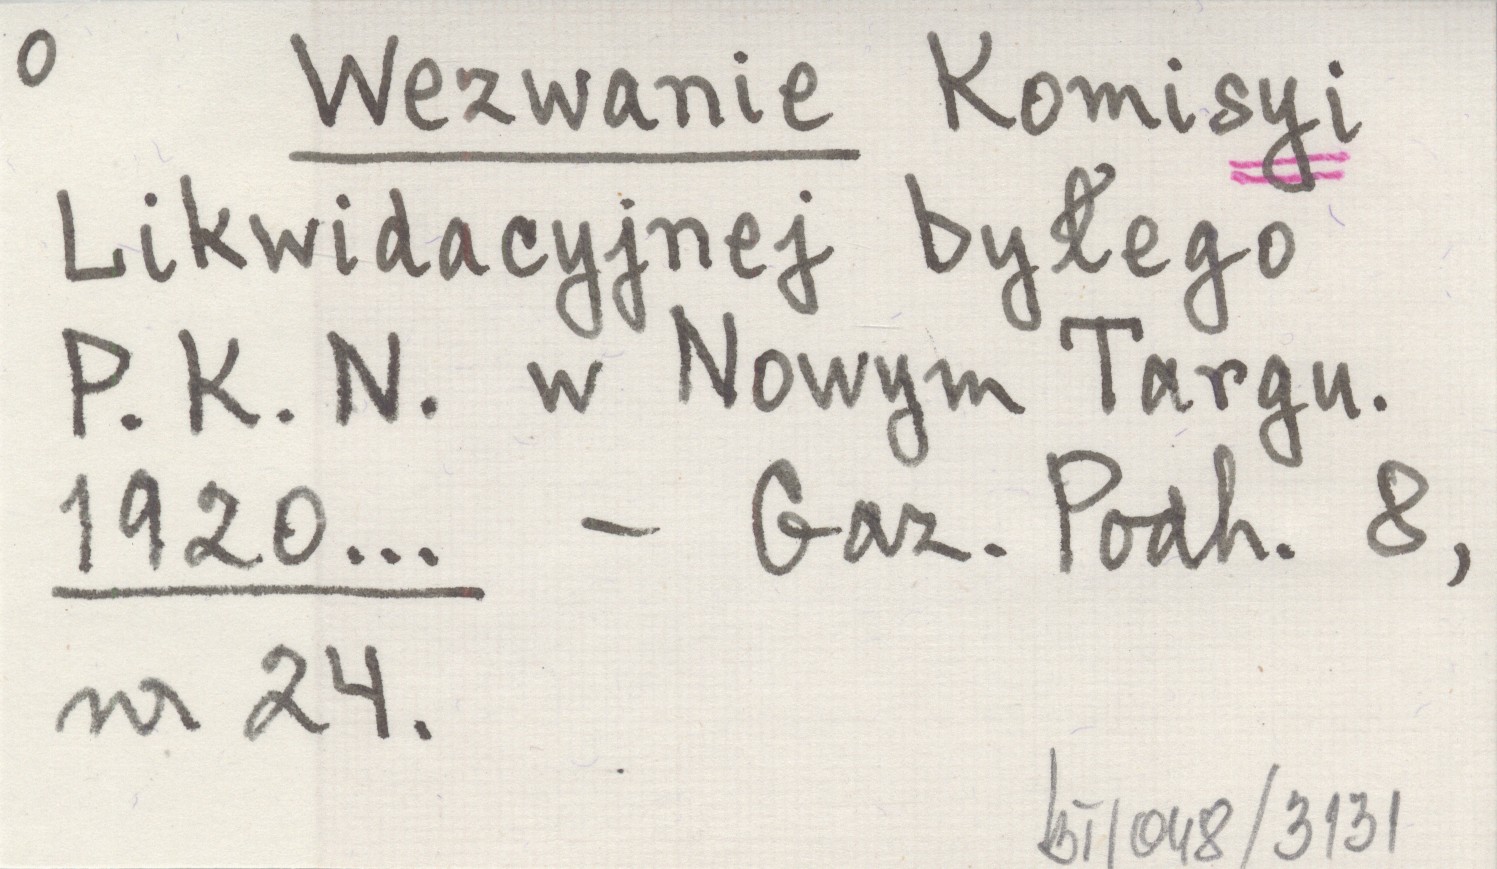 o Wezwanie Komisyi
Likwidacyjnej byłego
P. K. N. w Nowym Targu.
1920... - Gaz. Podh. 8,
nr 24.
bI/048/3131